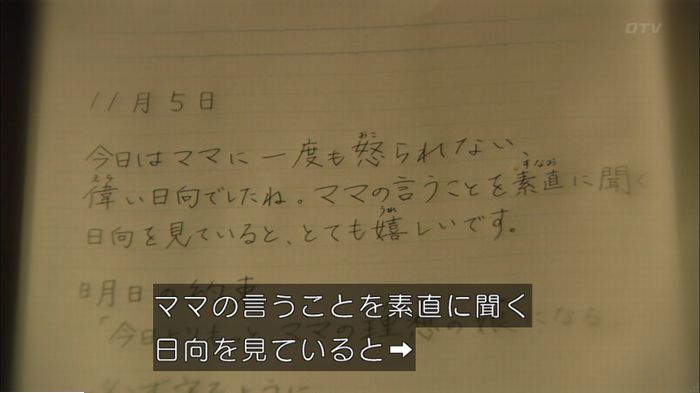 OTV
11月5日
おこ
今日はママに一度も怒られない、
えら すなお
偉い日向でしたね。ママの言うことを素直に聞く
うれ
日向を見ていると、とても嬉しいです。
明日の約束
ママの言うことを素直に聞く
日向を見ていると➡
「今日よりもっとママの理想の娘になる
必ず守るように